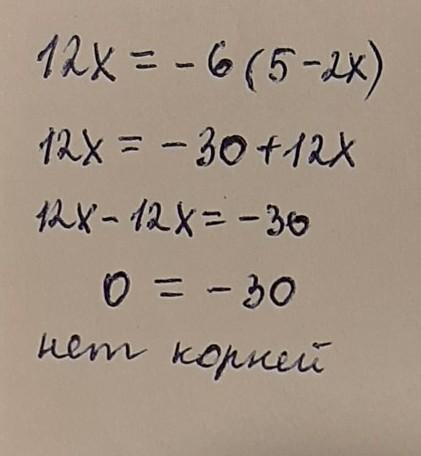 12x = -6(5-2x)
12x = -30+12x
12x-12x=-30
0 = -30
нет корней